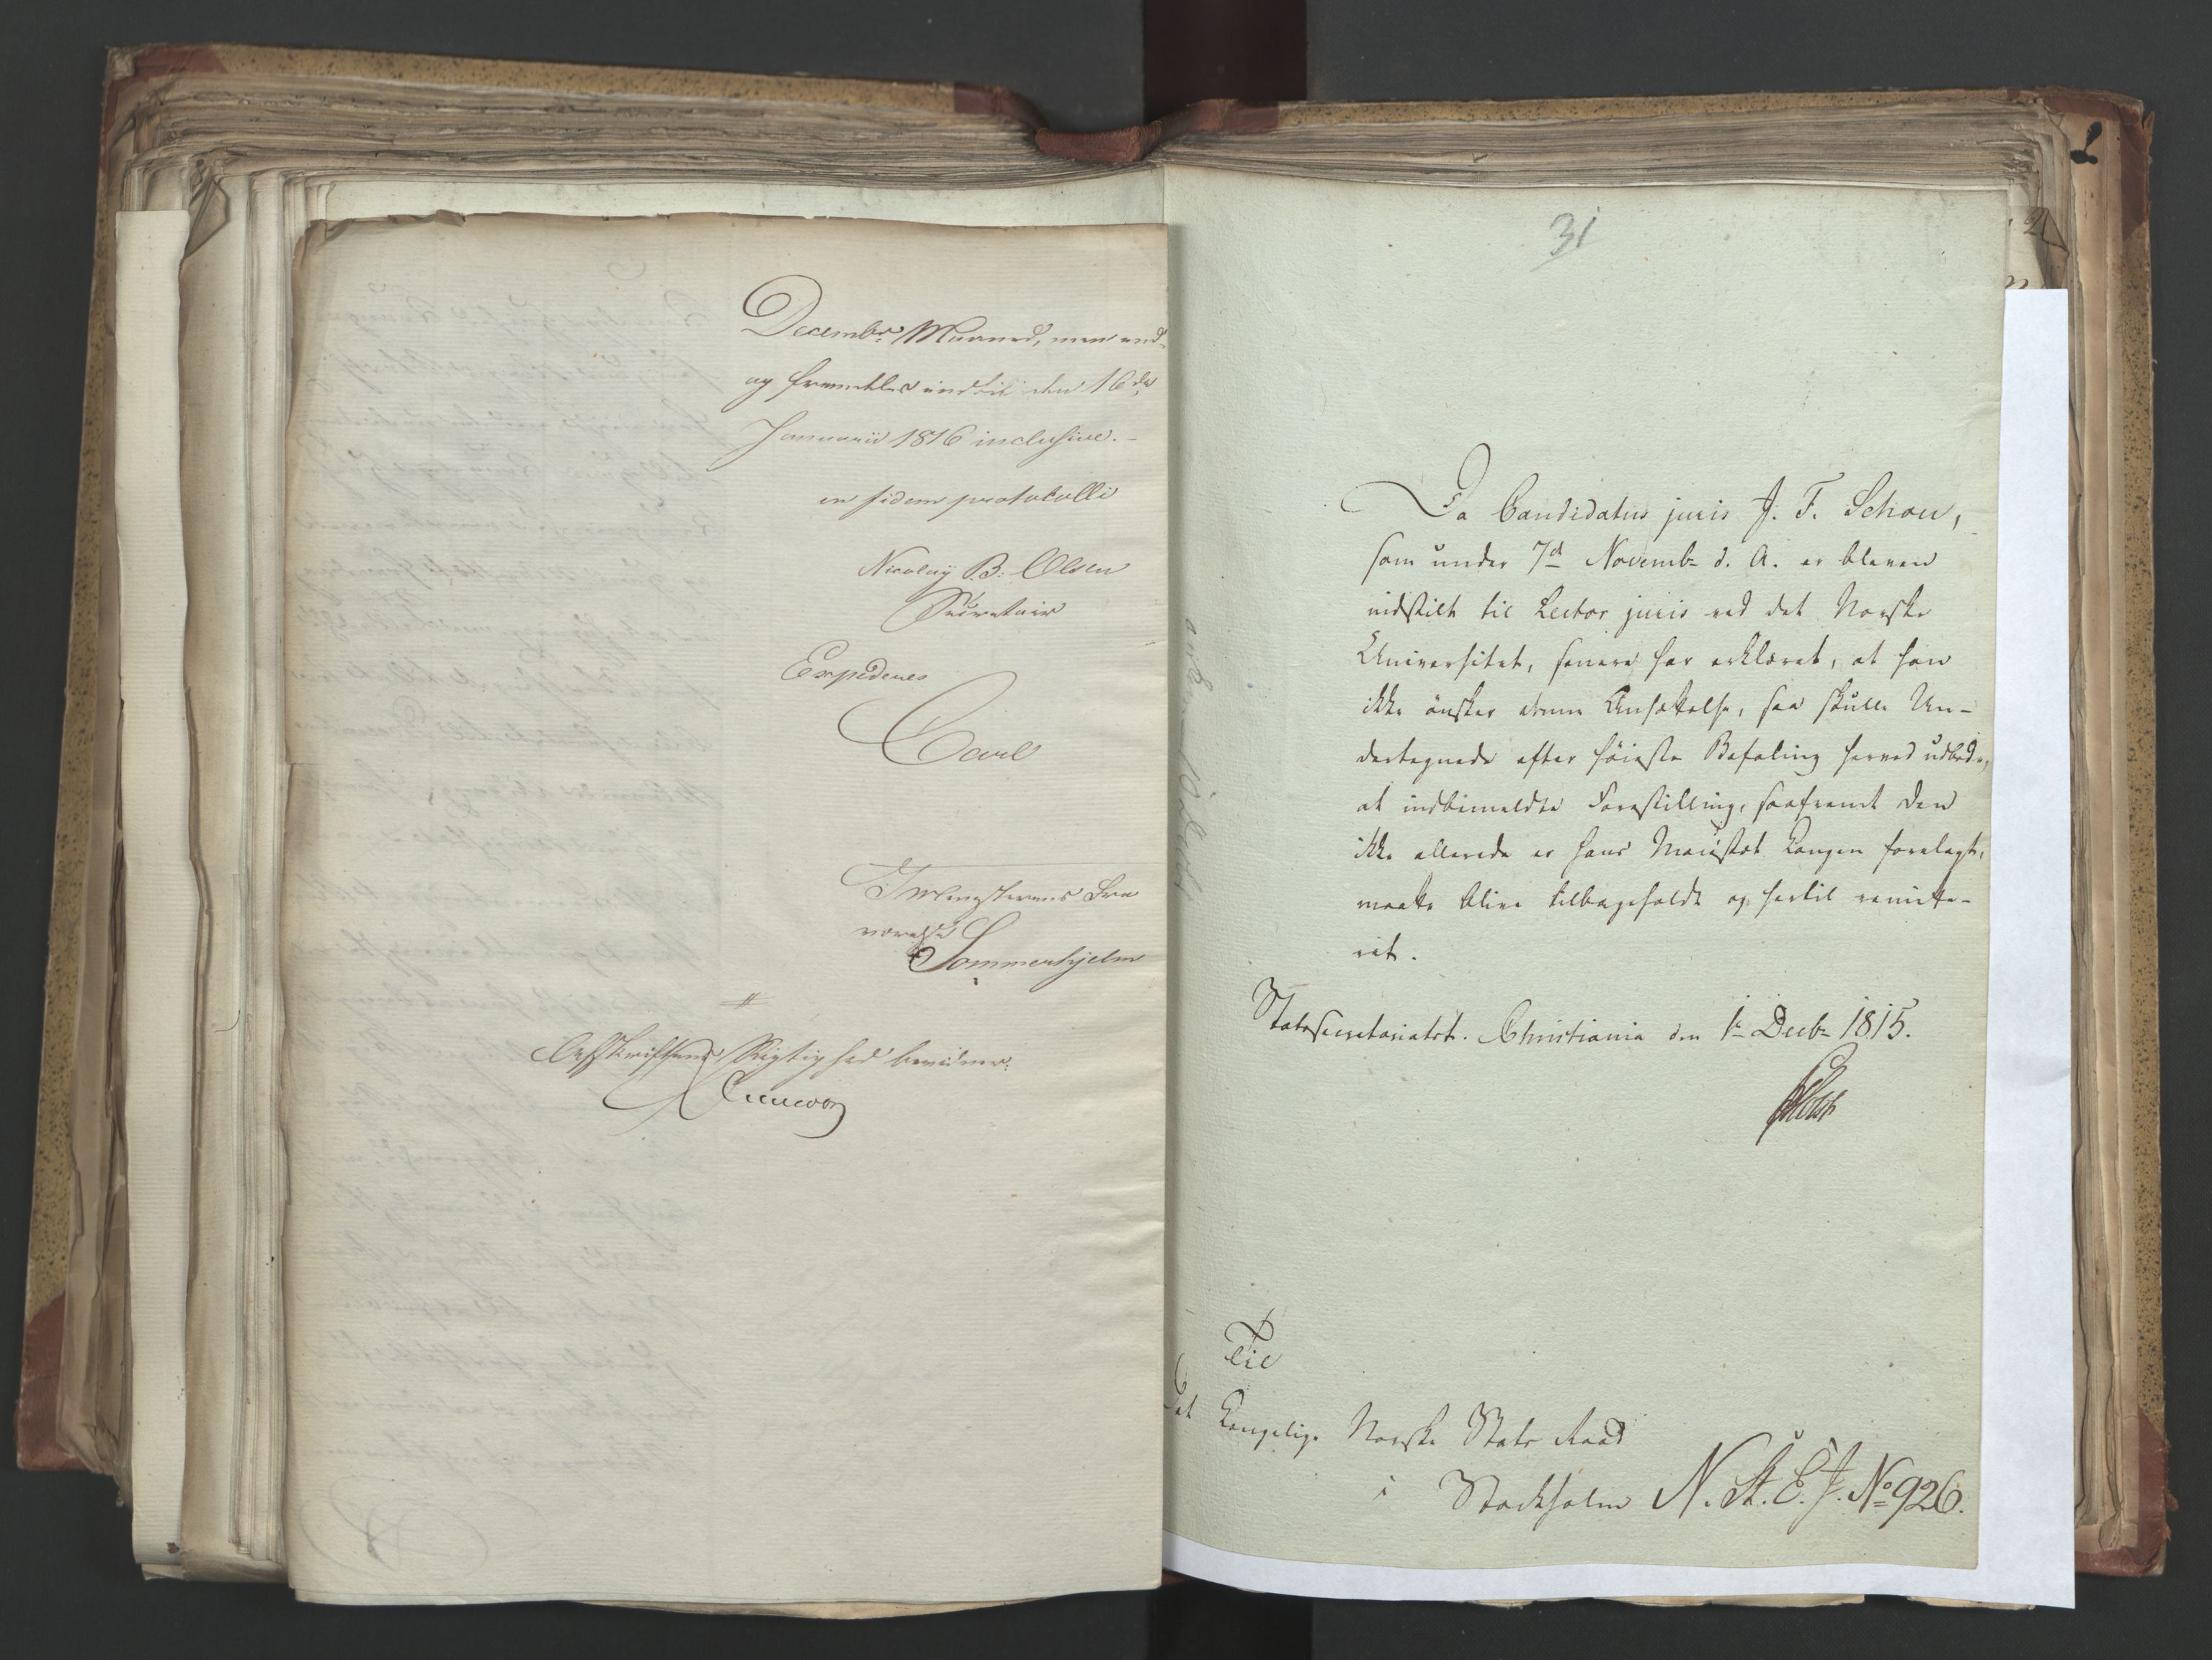 Decembr. Maaned, men end-
og fremdeles indtil den 16de
Januarii 1816 inclusive.-
in fidem protocolli
Nicolay B: Olsen
Secretair
Expederes
Carl
I Ministerens Fra
værelse
Sommerhjelm
Afskriftens Rigtighed bevidner.
31
Da Candidatus juris J. F. Schou,
som under 7d Novemb- d. A. er bleven
indstilt til Lector juris ved det Norske
Universitet, senere har erklæret, at han
ikke önsker denne Ansættelse, saa skulle Un-
dertegnede efter höieste Befaling herved udbede,
at indbemeldte Forestilling, saafremt den
ikke allerede er Hans Majestæt Kongen forelagt,
maatte blive tilbageholdt og hertil remitte-
ret.
Statssecretariatet. Christiania den 1- Decb- 1815.
Holst
Til
Det Kongelige Norske Stats Raad
i Stockholm N. St. E. J. No 926.